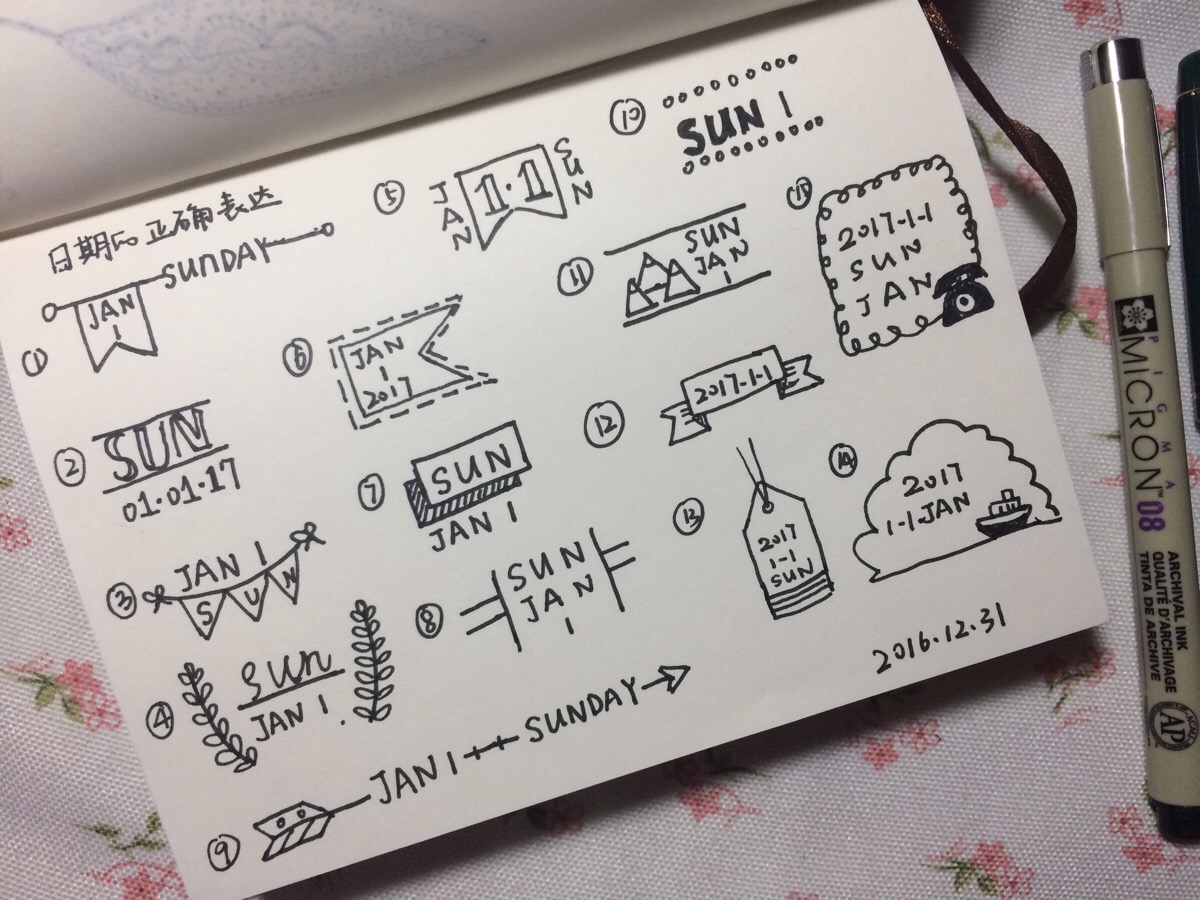 日期的正确表达
①
JAN
1
SUNDAY
②
SUN
01·01·17
③
JAN 1
SUN
④
SUN
JAN 1.
⑤
JAN
1·1
SUN
⑥
JAN
1
2017
⑦
SUN
JAN 1
⑧
SUN
JAN
1
⑨
JAN 1
SUNDAY
⑩
SUN 1
⑪
SUN
JAN
1
⑫
2017·1-1
⑬
2017
1-1
SUN
⑭
2017
1-1·JAN
⑮
2017-1-1
SUN
JAN
2016.12.31
PIGMA
MICRON™ 08
ARCHIVAL INK
QUALITÉ D'ARCHIVAGE
TINTA DE ARCHIVE
AP